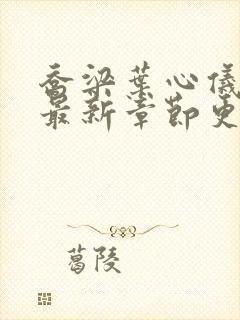 乔梁叶心仪
最新章节更
葛陵